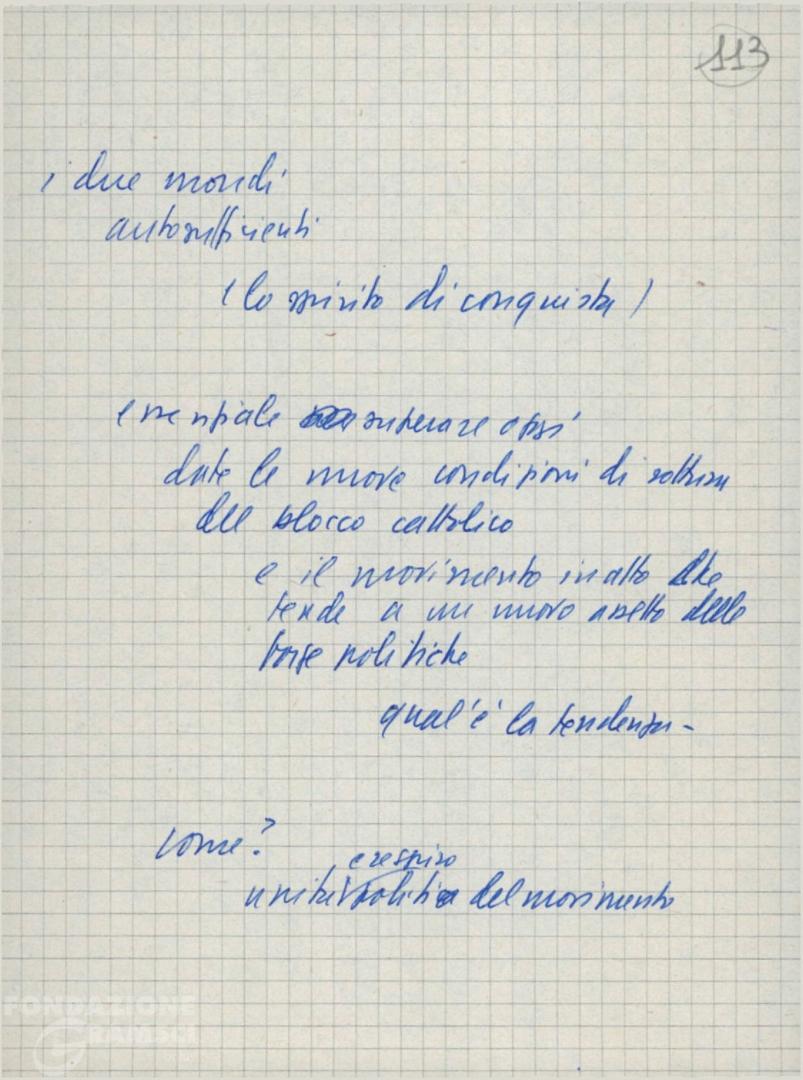 113
i due mondi
autosufficienti
(lo spirito di conquista)
essenziale superare oggi
date le nuove condizioni di rottura
del blocco cattolico
e il movimento in atto che
tende a un nuovo assetto delle
forze politiche
qual'è la tendenza -
come?
e respiro
unità politica del movimento
FONDAZIONE
GRAMSCI